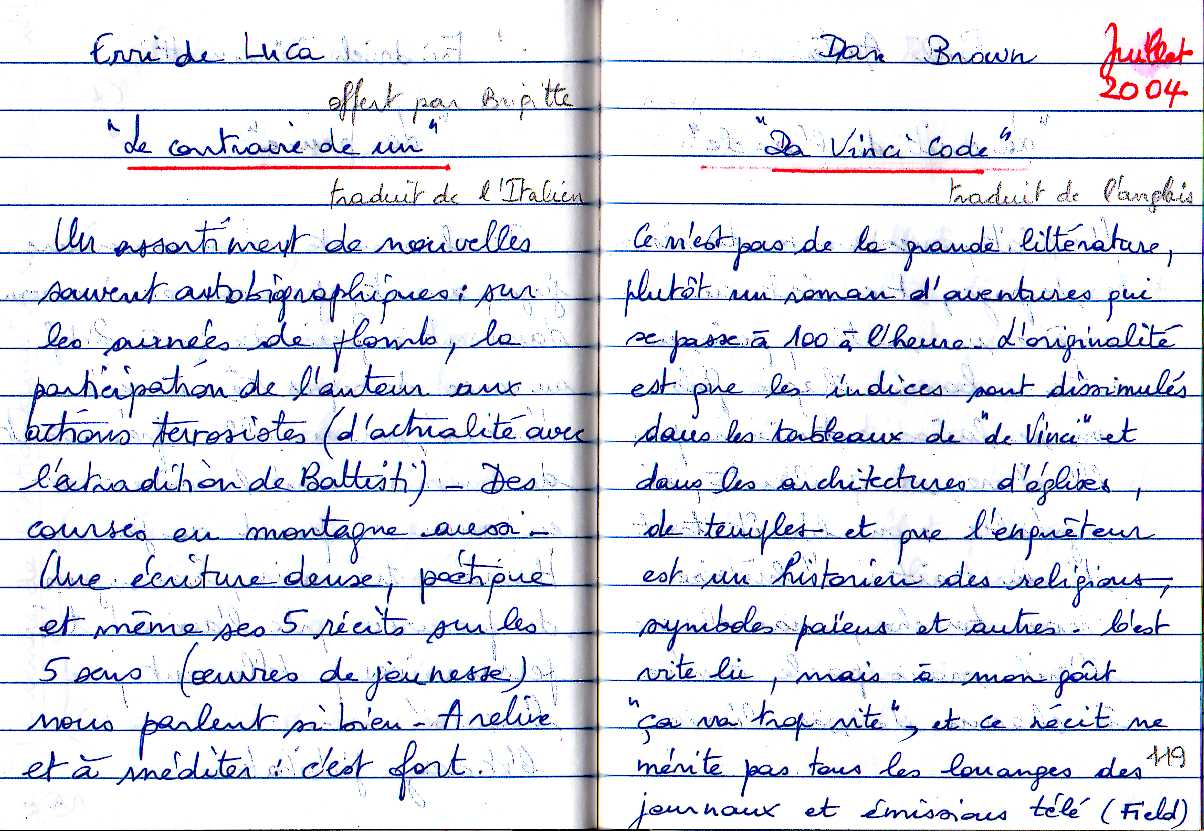 Erri de Luca
offert par Brigitte
"Le contraire de un"
traduit de l'Italien
Un assortiment de nouvelles
souvent autobiographiques : sur
les années de plomb, la
participation de l'auteur aux
actions terroristes (d'actualité avec
l'extradition de Battisti) – Des
courses en montagne aussi –
Une écriture dense, poétique
et même ses 5 récits sur les
5 sens (œuvres de jeunesse)
nous parlent si bien – A relire
et à méditer : c'est fort.
Dan Brown
Juillet
2004
"Da Vinci Code"
traduit de l'anglais
Ce n'est pas de la grande littérature,
plutôt un roman d'aventures qui
se passe à 100 à l'heure. L'originalité
est que les indices sont dissimulés
dans les tableaux de "de Vinci" et
dans les architectures d'églises,
de temples et que l'enquêteur
est un historien des religions,
symboles païens et autres. C'est
vite lu, mais à mon goût
"ça va trop vite", et ce récit ne
mérite pas tous les louanges des
journaux et émissions télé (Field)
119